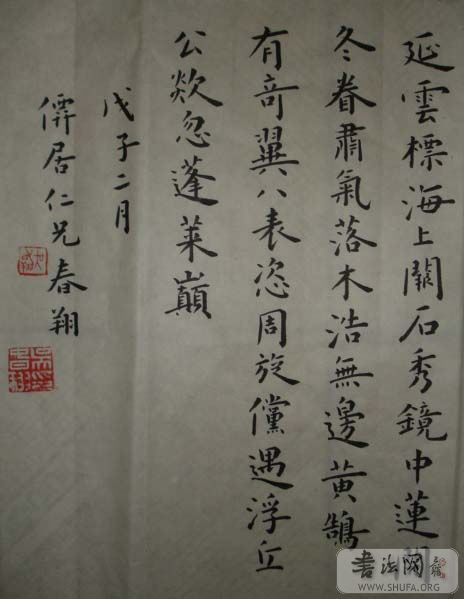 延雲標海上關石秀鏡中蓮
冬眷肅氣落木浩無邊黃鵠
有竒翼八表恣周旋儻遇浮丘
公欻忽蓬萊巔
戊子二月
居仁兄春翔
书法网
WWW.SHUFA.ORG